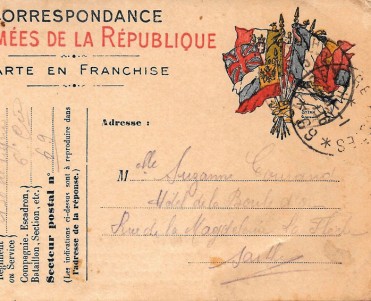 CORRESPONDANCE
MÉES DE LA RÉPUBLIQUE
ARTE EN FRANCHISE
Adresse :
Mlle Suzanne
Hotel de la Boule d'or
Rue de la Magdeleine La Flèche
Sarthe
Régiment
ou Service)
Compagnie, Escadron,
Bataillon, Section, etc.
6e
Secteur postal n° 69
(Les indications ci-dessus sont à reproduire dans
l'adresse de la réponse.)